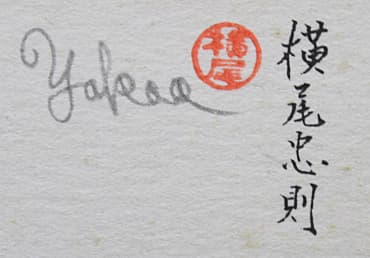 Yokoo
横尾
横尾忠則